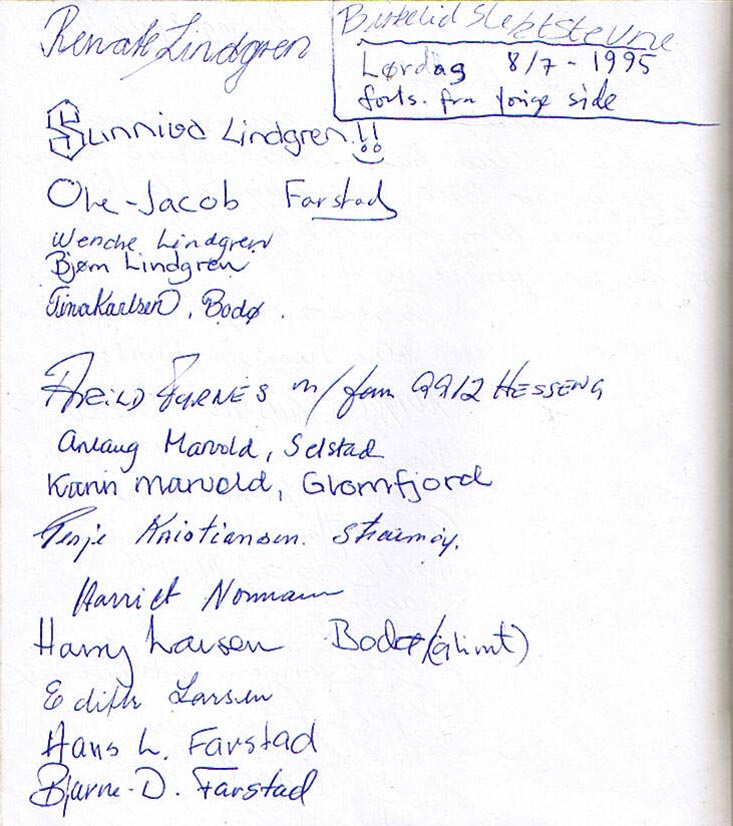 Renate Lindgren
Slektsstevne
Lørdag 8/7-1995
forts. fra forige side
Sunniva Lindgren!!
Ole-Jacob Farstad
Wenche Lindgren
Bjørn Lindgren
Tina Karlsen, Bodø.
m/fam 9912 HESSENG
Anlaug Marvold, Selstad
Karin Marvold, Glomfjord
Terje Kristiansen.
Harriet Normann
Harry Larsen Bodø/Glimt)
Edith Larsen
Hans L. Farstad
Bjarne-D. Farstad